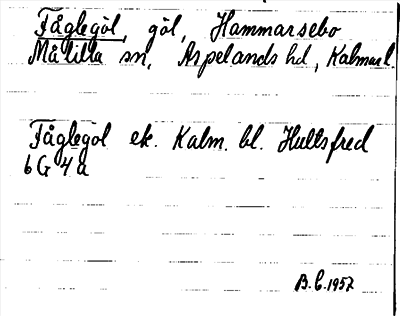 Fåglegöl, göl, Hammarsebo
Målilla sn, Aspelands hd, Kalmar l.
Fåglegöl ek. Kalm. bl. Hultsfred
6G 4a
B.C. 1957